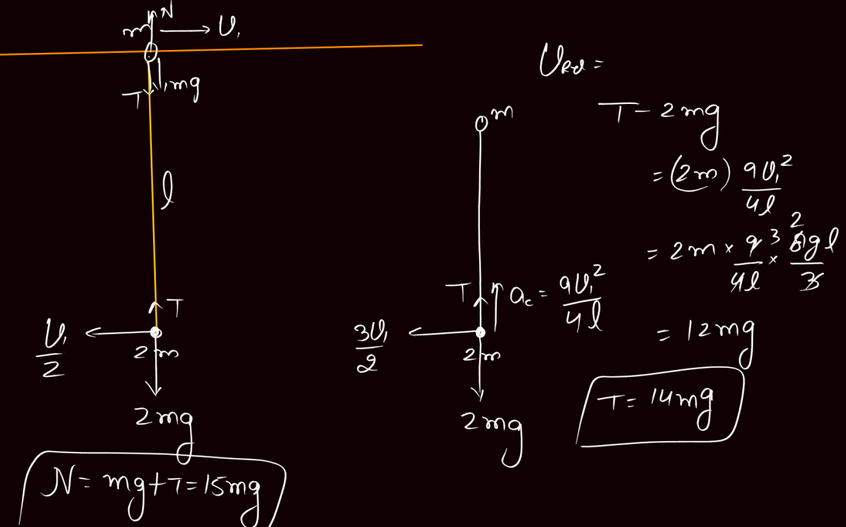 N
m → v₁
mg
T
l
T
v₁/2
2m
2mg
N = mg + T = 15mg
m
T
a_c = 9v₁²/4l
3v₁/2
2m
2mg
T - 2mg
= (2m) 9v₁²/4l
= 2m × 9/4l ×
= 12mg
T = 14mg